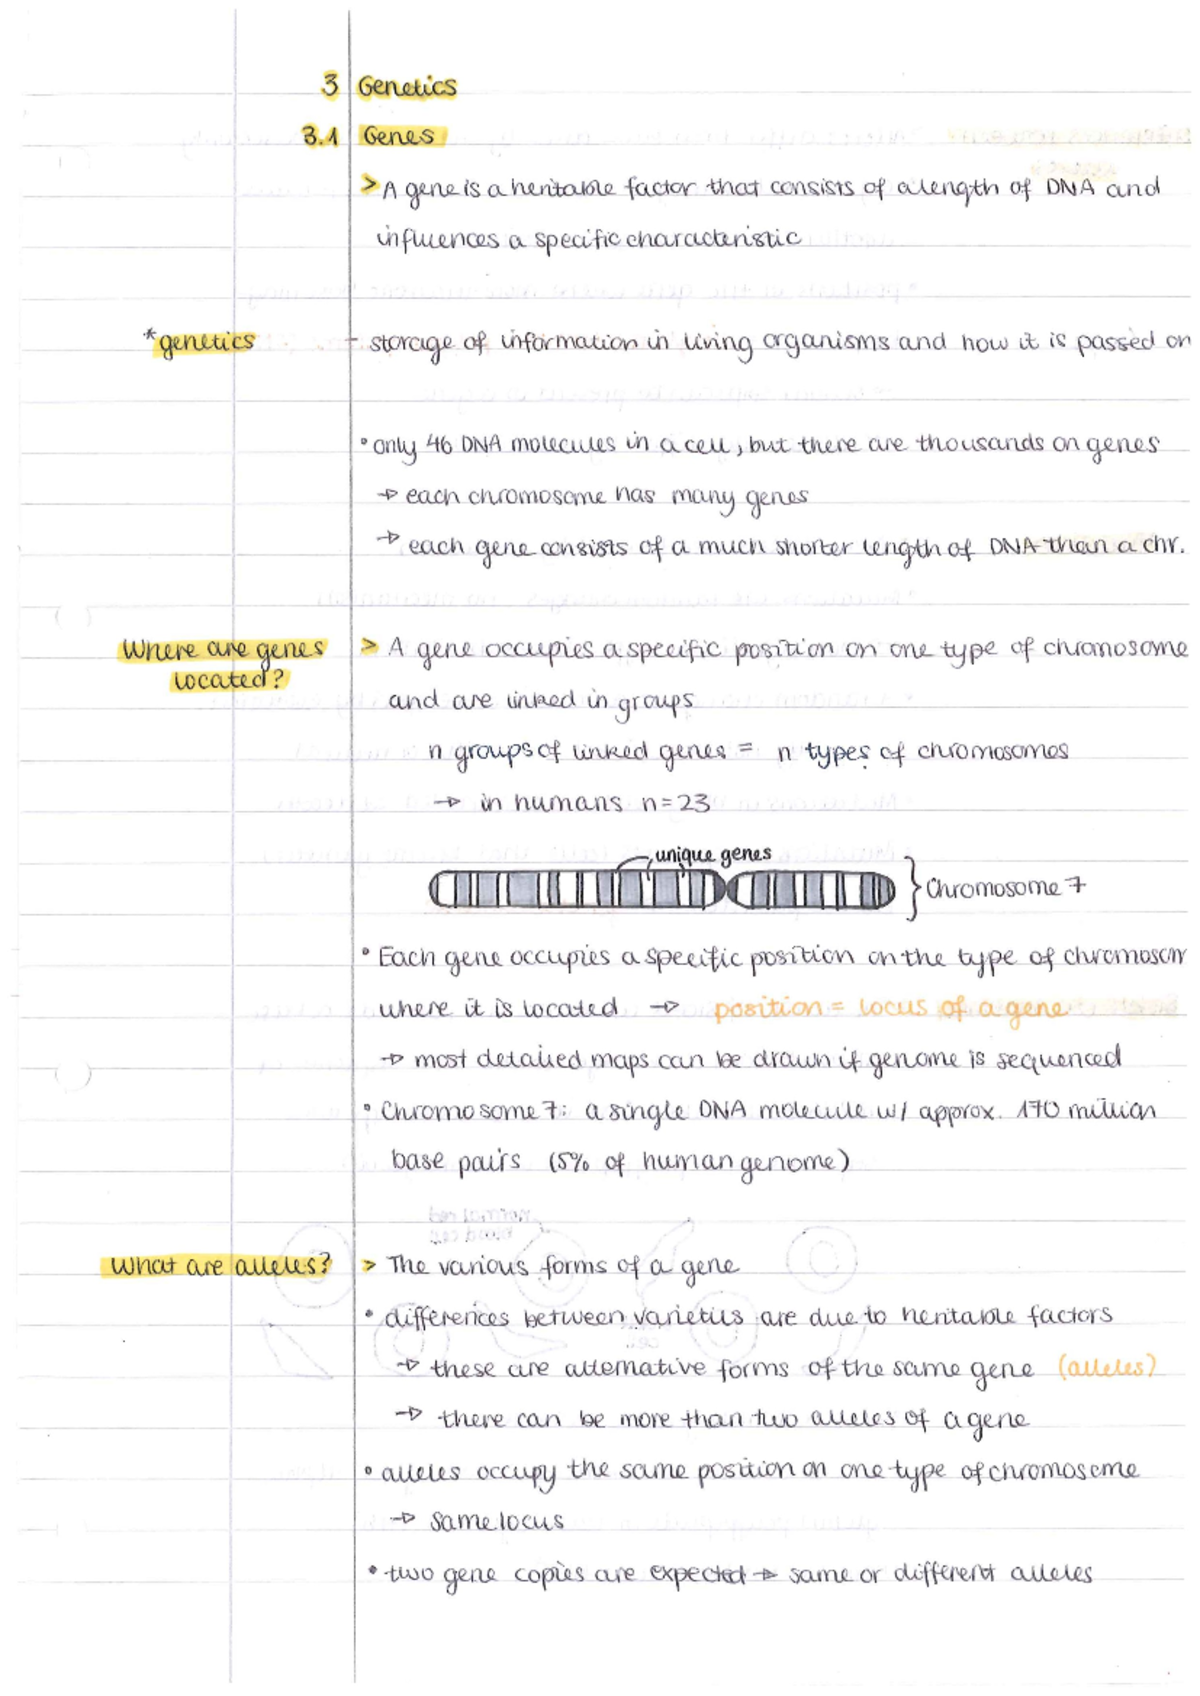 3 Genetics
3.1 Genes
> A gene is a heritable factor that consists of a length of DNA and
influences a specific characteristic
*genetics - storage of information in living organisms and how it is passed on
• only 46 DNA molecules in a cell, but there are thousands on genes
→ each chromosome has many genes
→ each gene consists of a much shorter length of DNA than a chr.
Where are genes > A gene occupies a specific position on one type of chromosome
located?
and are linked in groups
n groups of linked genes = n types of chromosomes
→ in humans n=23
unique genes
Chromosome 7
• Each gene occupies a specific position on the type of chromosom
where it is located → position = locus of a gene
→ most detailed maps can be drawn if genome is sequenced
• Chromosome 7: a single DNA molecule w/ approx. 170 million
base pairs (5% of human genome)
What are alleles? > The various forms of a gene
• differences between varieties are due to heritable factors
→ these are alternative forms of the same gene (alleles)
→ there can be more than two alleles of a gene
• alleles occupy the same position on one type of chromosome
→ same locus
• two gene copies are expected → same or different alleles